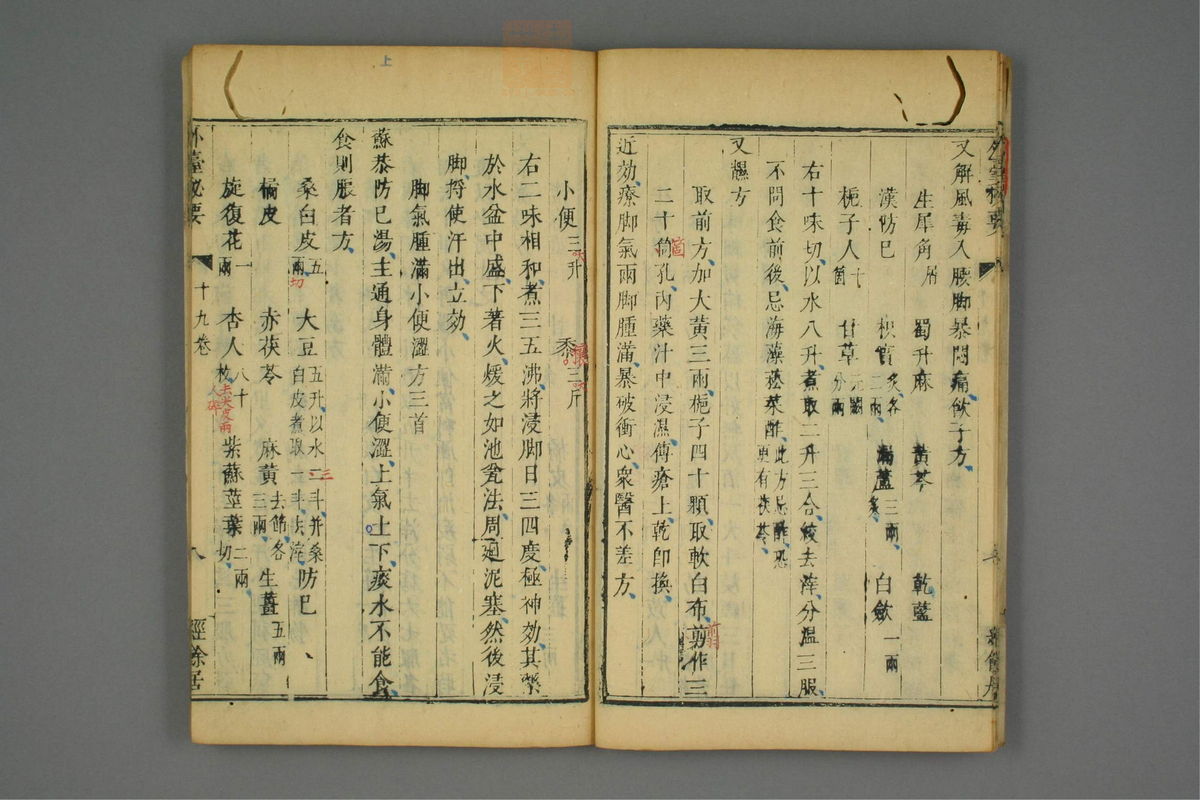 又解風毒入腰脚暴悶痛飲子方
生犀角屑 蜀升麻 黃芩 乾藍
漢防巳 枳實炙各二兩 漏蘆炙三兩 白斂一兩
梔子人十箇 甘草
右十味切以水八升煮取二升三合絞去滓分溫三服
不問食前後忌海藻菘菜酢此方忌酢恐更有茯苓
又礠方
取前方加大黃三兩梔子四十顆取軟白布剪作三
二十箇孔內藥汁中浸濕傅瘡上乾卽換
近効療脚氣兩脚腫滿暴破衝心衆醫不差方
小便三升 黍三斤
右二味相和煮三五沸將浸脚日三四度極神効其藥
於水盆中盛下著火煖之如池瓮法周迴泥塞然後浸
脚捋使汗出立効
脚氣腫滿小便澀方三首
蘇恭防巳湯主通身體滿小便澀上氣上下痰水不能食
食則脹者方
桑白皮五兩切 大豆五升以水二斗并桑白皮煮取一斗去滓 防巳
橘皮 赤茯苓 麻黃去節各三兩 生薑五兩
旋復花一兩 杏人八十枚去尖皮兩人碎 紫蘇莖葉二兩切
外臺秘要 十九卷 八 經餘居